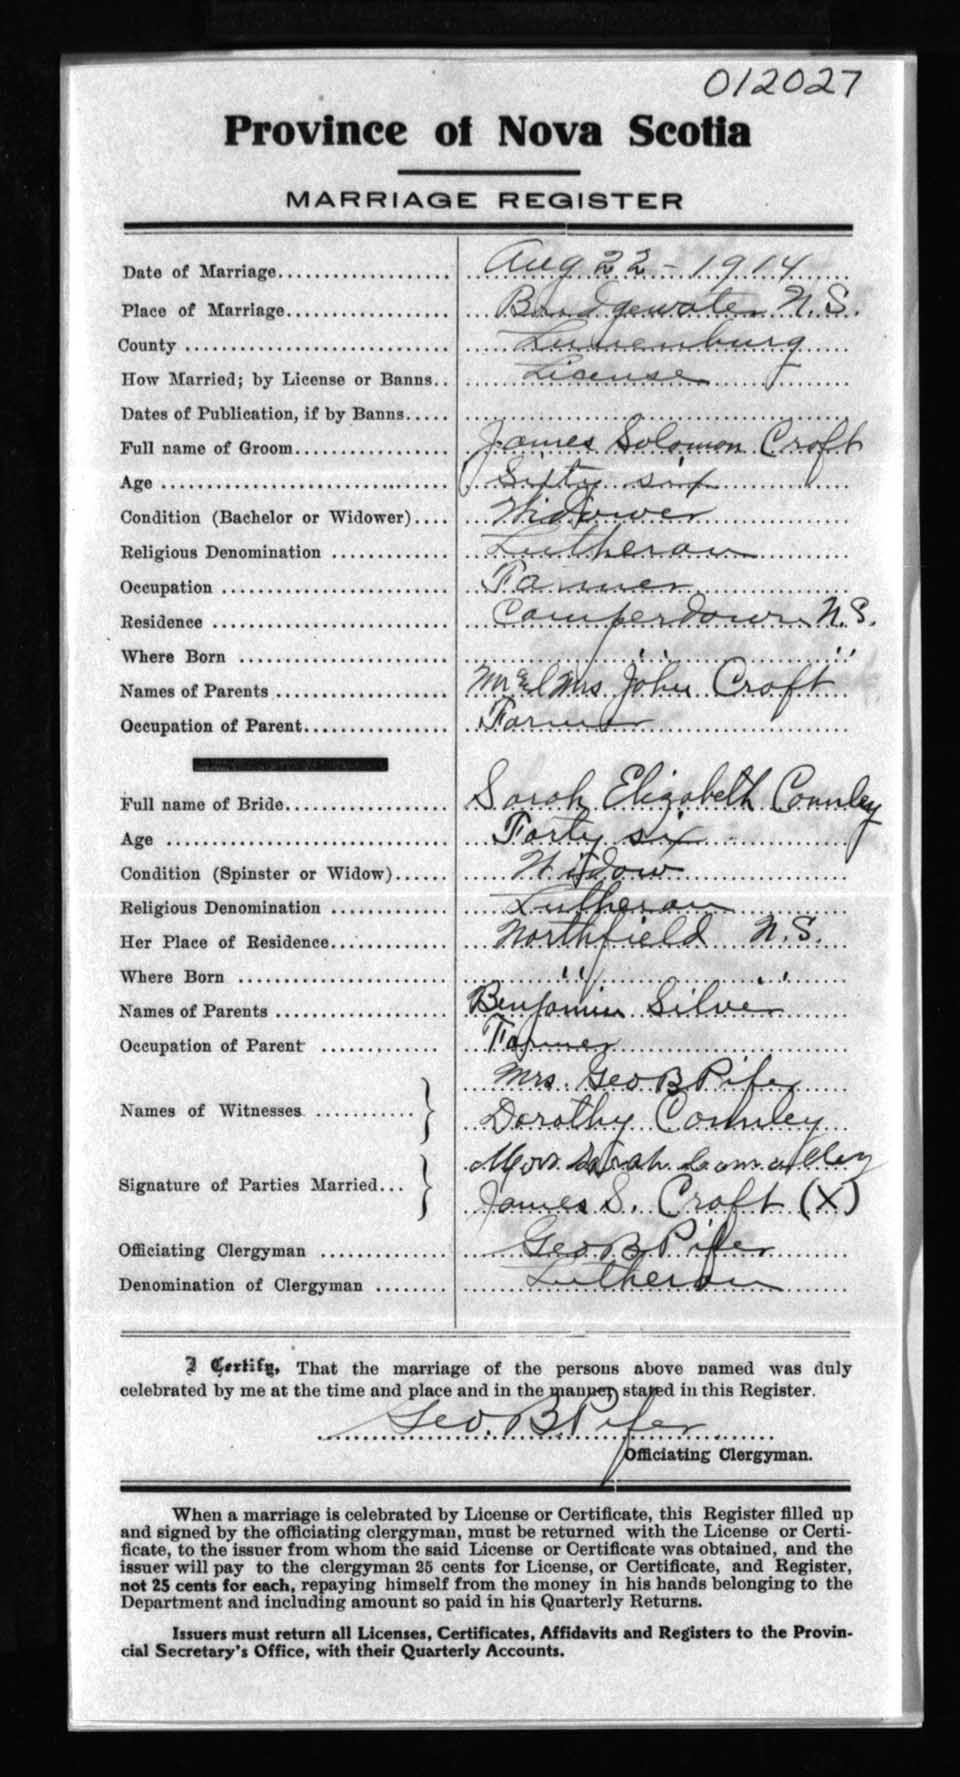 012027
Province of Nova Scotia
MARRIAGE REGISTER
Date of Marriage................... Aug 22 - 1914
Place of Marriage.................. Bridgewater N.S.
County ............................ Lunenburg
How Married; by License or Banns.. License
Dates of Publication, if by Banns.....
Full name of Groom................. James Solomon Croft
Age ............................... Sixty six
Condition (Bachelor or Widower).... Widower
Religious Denomination ............. Lutheran
Occupation ......................... Farmer
Residence .......................... Camperdown N.S.
Where Born ......................... " "
Names of Parents ................... Mr & Mrs John Croft
Occupation of Parent................ Farmer
Full name of Bride.................. Sarah Elizabeth Connley
Age ................................ Forty six
Condition (Spinster or Widow)...... Widow
Religious Denomination ............. Lutheran
Her Place of Residence............. Northfield N.S.
Where Born ......................... " "
Names of Parents ................... Benjamin Silver
Occupation of Parent ............. Farmer
Mrs. Geo B Pifer
Names of Witnesses ........... }
Dorothy Connley
Mrs Sarah
Signature of Parties Married... }
James S. Croft (X)
Officiating Clergyman .............. Geo B Pifer
Denomination of Clergyman ........ Lutheran
I Certify, That the marriage of the persons above named was duly
celebrated by me at the time and place and in the manner stated in this Register.
Geo. B. Pifer
Officiating Clergyman.
When a marriage is celebrated by License or Certificate, this Register filled up
and signed by the officiating clergyman, must be returned with the License or Certi-
ficate, to the issuer from whom the said License or Certificate was obtained, and the
issuer will pay to the clergyman 25 cents for License, or Certificate, and Register,
not 25 cents for each, repaying himself from the money in his hands belonging to the
Department and including amount so paid in his Quarterly Returns.
Issuers must return all Licenses, Certificates, Affidavits and Registers to the Provin-
cial Secretary's Office, with their Quarterly Accounts.